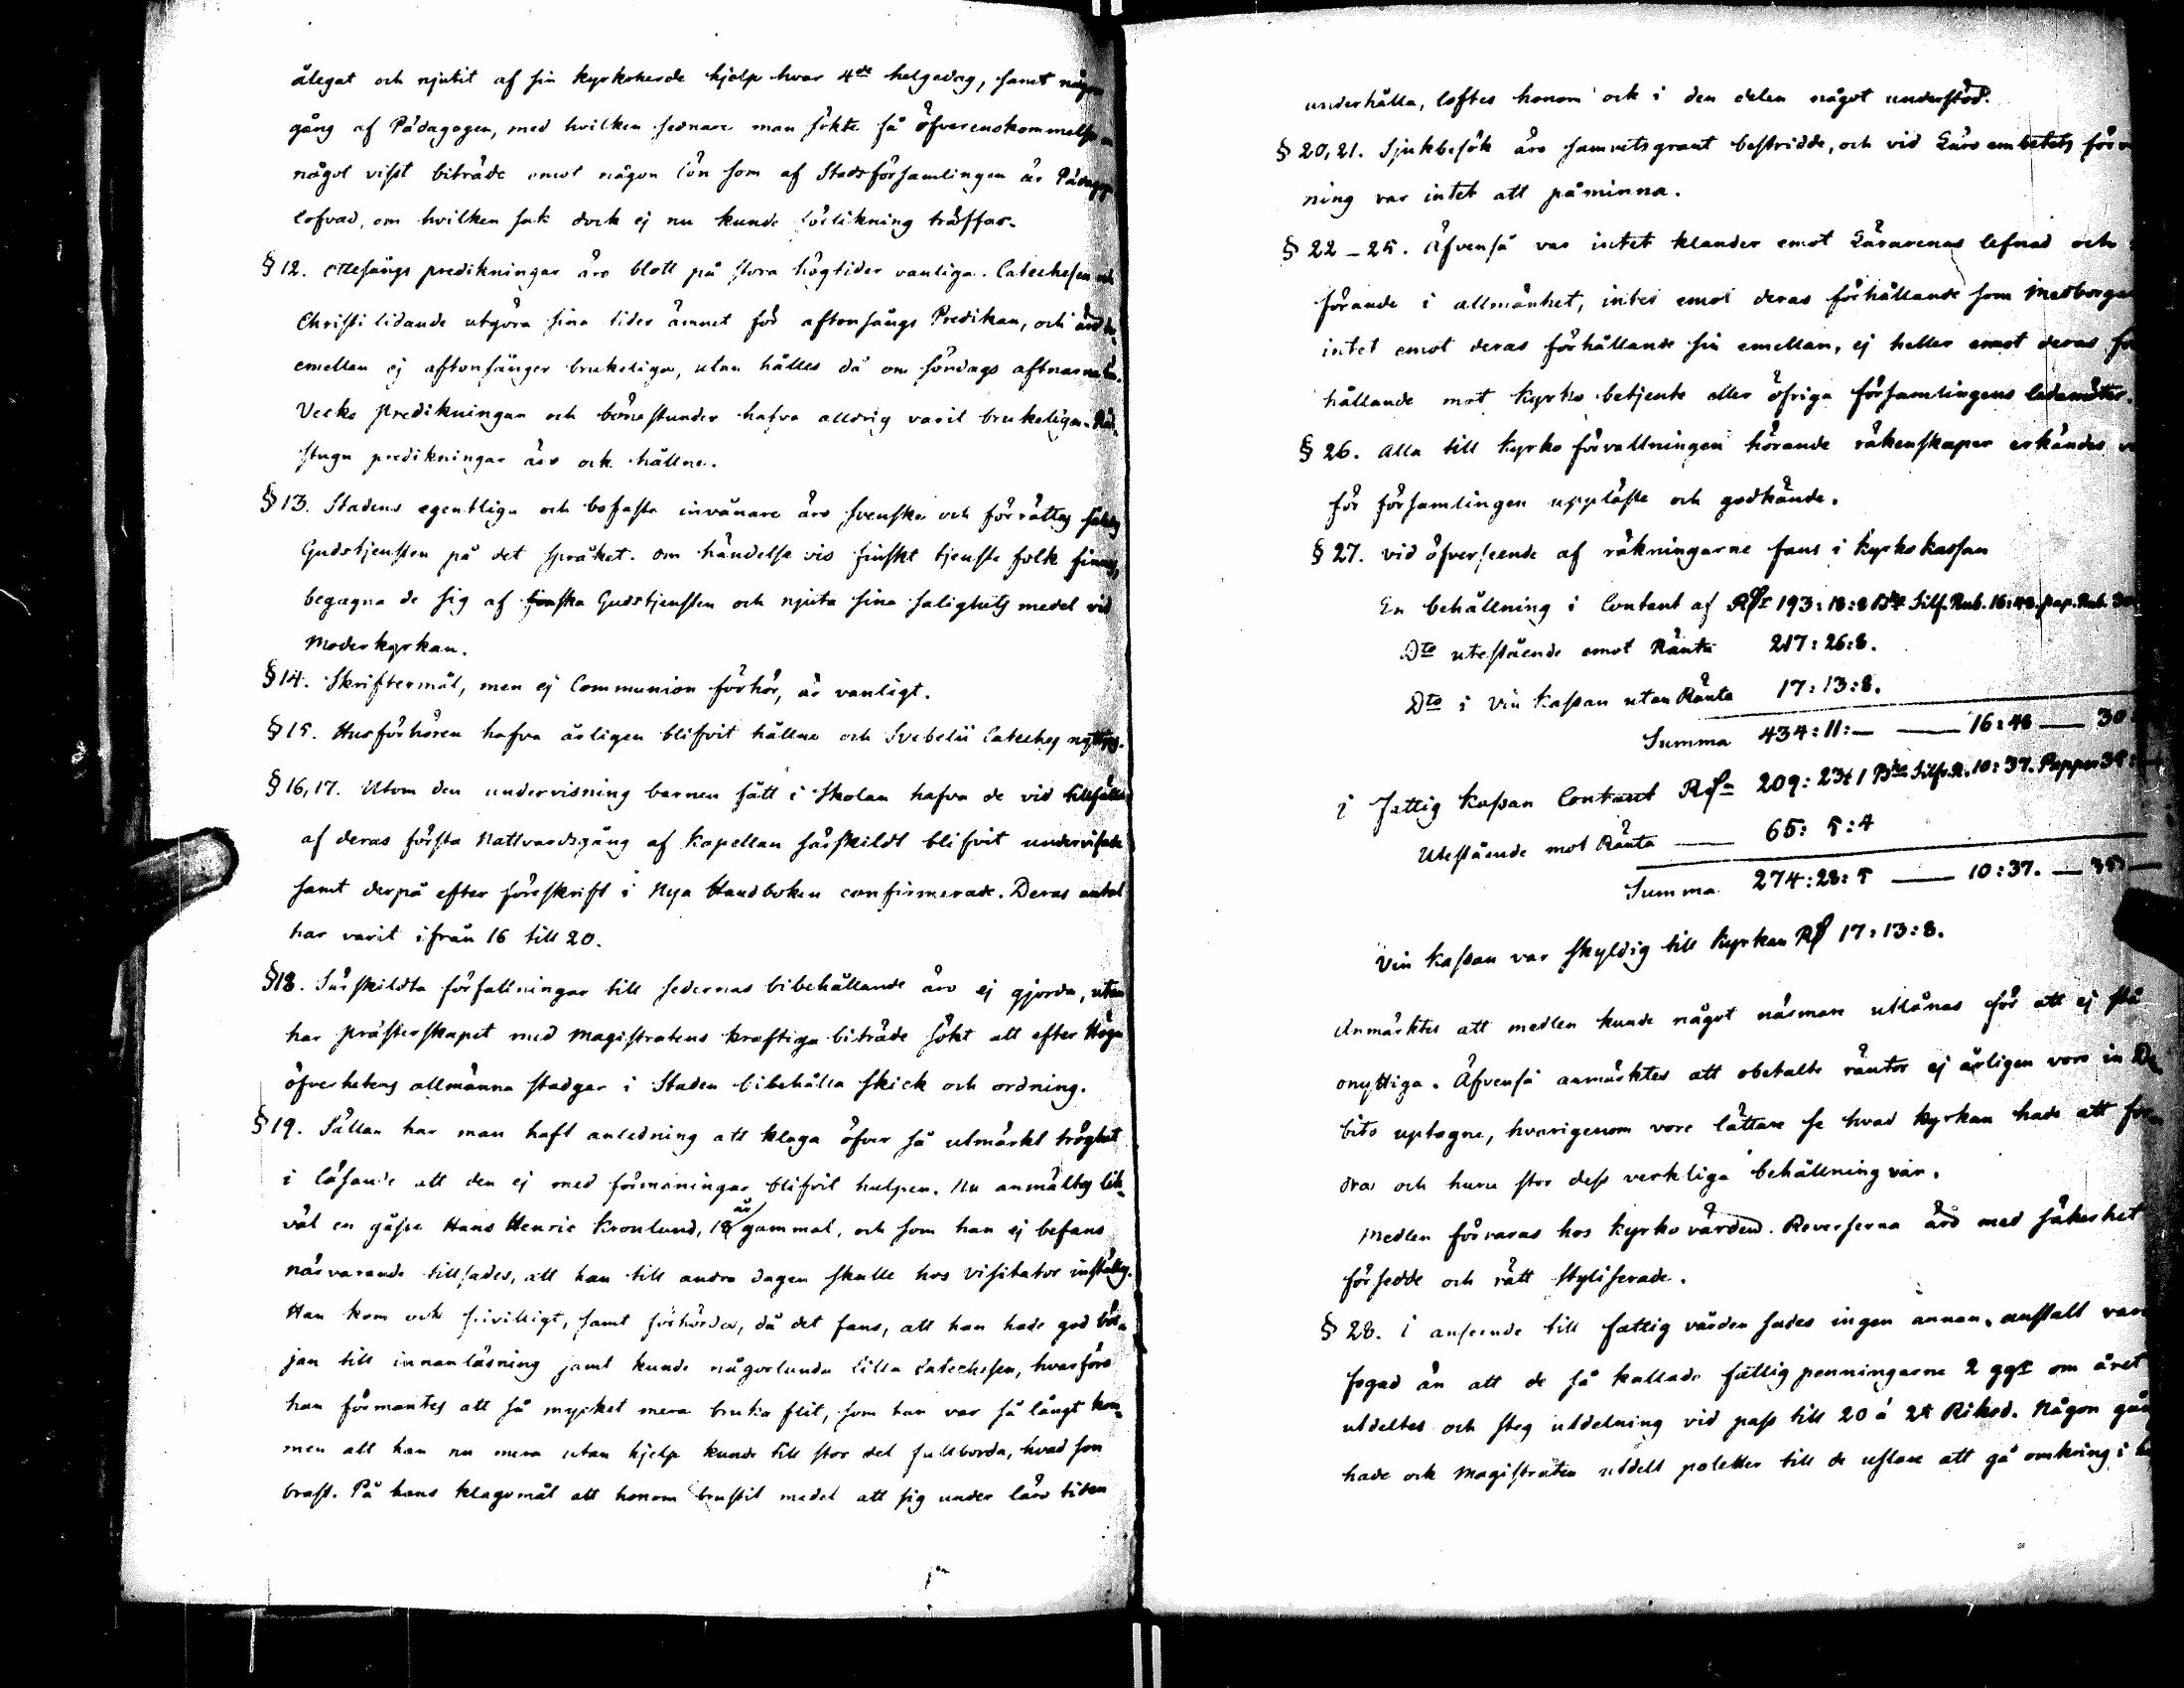 ålegat och njutit af sin kyrkoherde hjelp hvar 4de helgedag, samt någon
gång af Pädagogen, med hvilken sednare man sökte få öfverenskommelse
något visst biträde emot någon lön som af Stadsförsamlingen är
lofvad, om hvilken sak dock ej nu kunde förlikning träffas.
§ 12. Ottesångs predikningar äro blott på stora högtider vanliga. Catechesen och
Christi lidande utgöra sina tider ämnet för aftonsångs Predikan, och
emellan ej aftonsånger brukeliga, utan hålles då om söndags aftnarna
Vecko predikningar och bönestunder hafva alldrig varit brukeliga.
stugu predikningar äro ock hållne.
§ 13. Stadens egentliga och bofasta invånare äro svenska och förrättas
Gudstjensten på det språket. Om händelse vis finskt tjenste folk finnes,
begagna de sig af finska Gudstjensten och njuta sina salighets medel vid
Moderkyrkan.
§ 14. Skriftermål, men ej Communion förhör, är vanligt.
§ 15. Husförhören hafva årligen blifvit hållne och Svebelii Cateches nyttjas.
§ 16, 17. Utom den undervisning barnen fått i Skolan hafva de vid tillfälle
af deras första Nattvardsgång af Kapellan särskildt blifvit undervisade
samt derpå efter föreskrift i Nya Handboken confirmerade. Deras antal
har varit ifrån 16 till 20.
§ 18. Särskildta författningar till sedernas bibehållande äro ej gjorda, utan
har prästerskapet med Magistratens kraftiga biträde sökt att efter Höga
öfverhetens allmänna stadgar i Staden bibehålla skick och ordning.
§ 19. Sällan har man haft anledning att klaga öfver så utmärkt tröghet
i läsande att den ej med förmaningar blifvit hulpen. Nu anmältes lik-
väl en gåsse Hans Henric Kronlund, 18 år gammal, och som han ej befans
närvarande tillsades, att han till andra dagen skulle hos Visitator inställas.
Han kom ock frivilligt, samt förhördes, då det fans, att han hade god bör-
jan till innanläsning samt kunde någorlunda lilla Catechesen, hvarföre
han förmantes att så mycket mera bruka flit, som han var så långt kom-
men att han nu mera utan hjelp kunde till stor del fullborda, hvad som
brast. På hans klagomål att honom brustit medel att sig under läro tiden
underhålla, loftes honom ock i den delen något understöd.
§ 20, 21. Sjukbesök äro samvetsgrant bestridde, och vid Läro embetets
ning var intet att påminna.
§ 22 – 25. Äfvenså var intet klander emot Lärarenas lefnad och
förande i allmänhet, intet emot deras förhållande som Medborgare
intet emot deras förhållande sin emellan, ej heller emot deras för
hållande mot Kyrko betjente eller öfriga församlingens ledamöter.
§ 26. Alla till Kyrko förvaltningen hörande räkenskaper erkändes
för församlingen uppläste och godkände.
§ 27. vid öfverseende af räkningarne fans i Kyrko kassan
En behållning i Contant af Rdr 193: 18: 8 Bko Silf. Rub. 16: 48. pap. Rub. 30
Dto utestående emot Ränta 217: 26: 8.
Dto i Vin kassan utan Ränta 17: 13: 8.
Summa 434: 11: — — 16: 48 — 30
i Fattig kassan Contant Rdr 209: 23: 1 Bko Silfr. R. 10: 37. Papper 39:
Utestående mot Ränta — 65: 5: 4
Summa 274: 28: 5 — 10: 37. — 39:
Vin kassan var skyldig till Kyrkan Rd 17: 13: 8.
Anmärktes att medlen kunde något närmare utlånas för att ej stå
onyttiga. Äfvenså anmärktes att obetalte räntor ej årligen voro in De
bito uptagne, hvarigenom vore lättare se hvad kyrkan hade att for-
dra och huru stor dess verkliga behållning var.
Medlen förvaras hos Kyrko värden. Reverserna äro med säkerhet
försedde och rätt styliserade.
§ 28. I anseende till fattig vården sades ingen annan anstalt vara
fogad än att de så kallade fattig penningarne 2 ggr om året
utdeltes och steg utdelning vid pass till 20 á 24 Riksd. Någon gång
hade ock Magistraten utdelt paletter till de uslare att gå omkring i